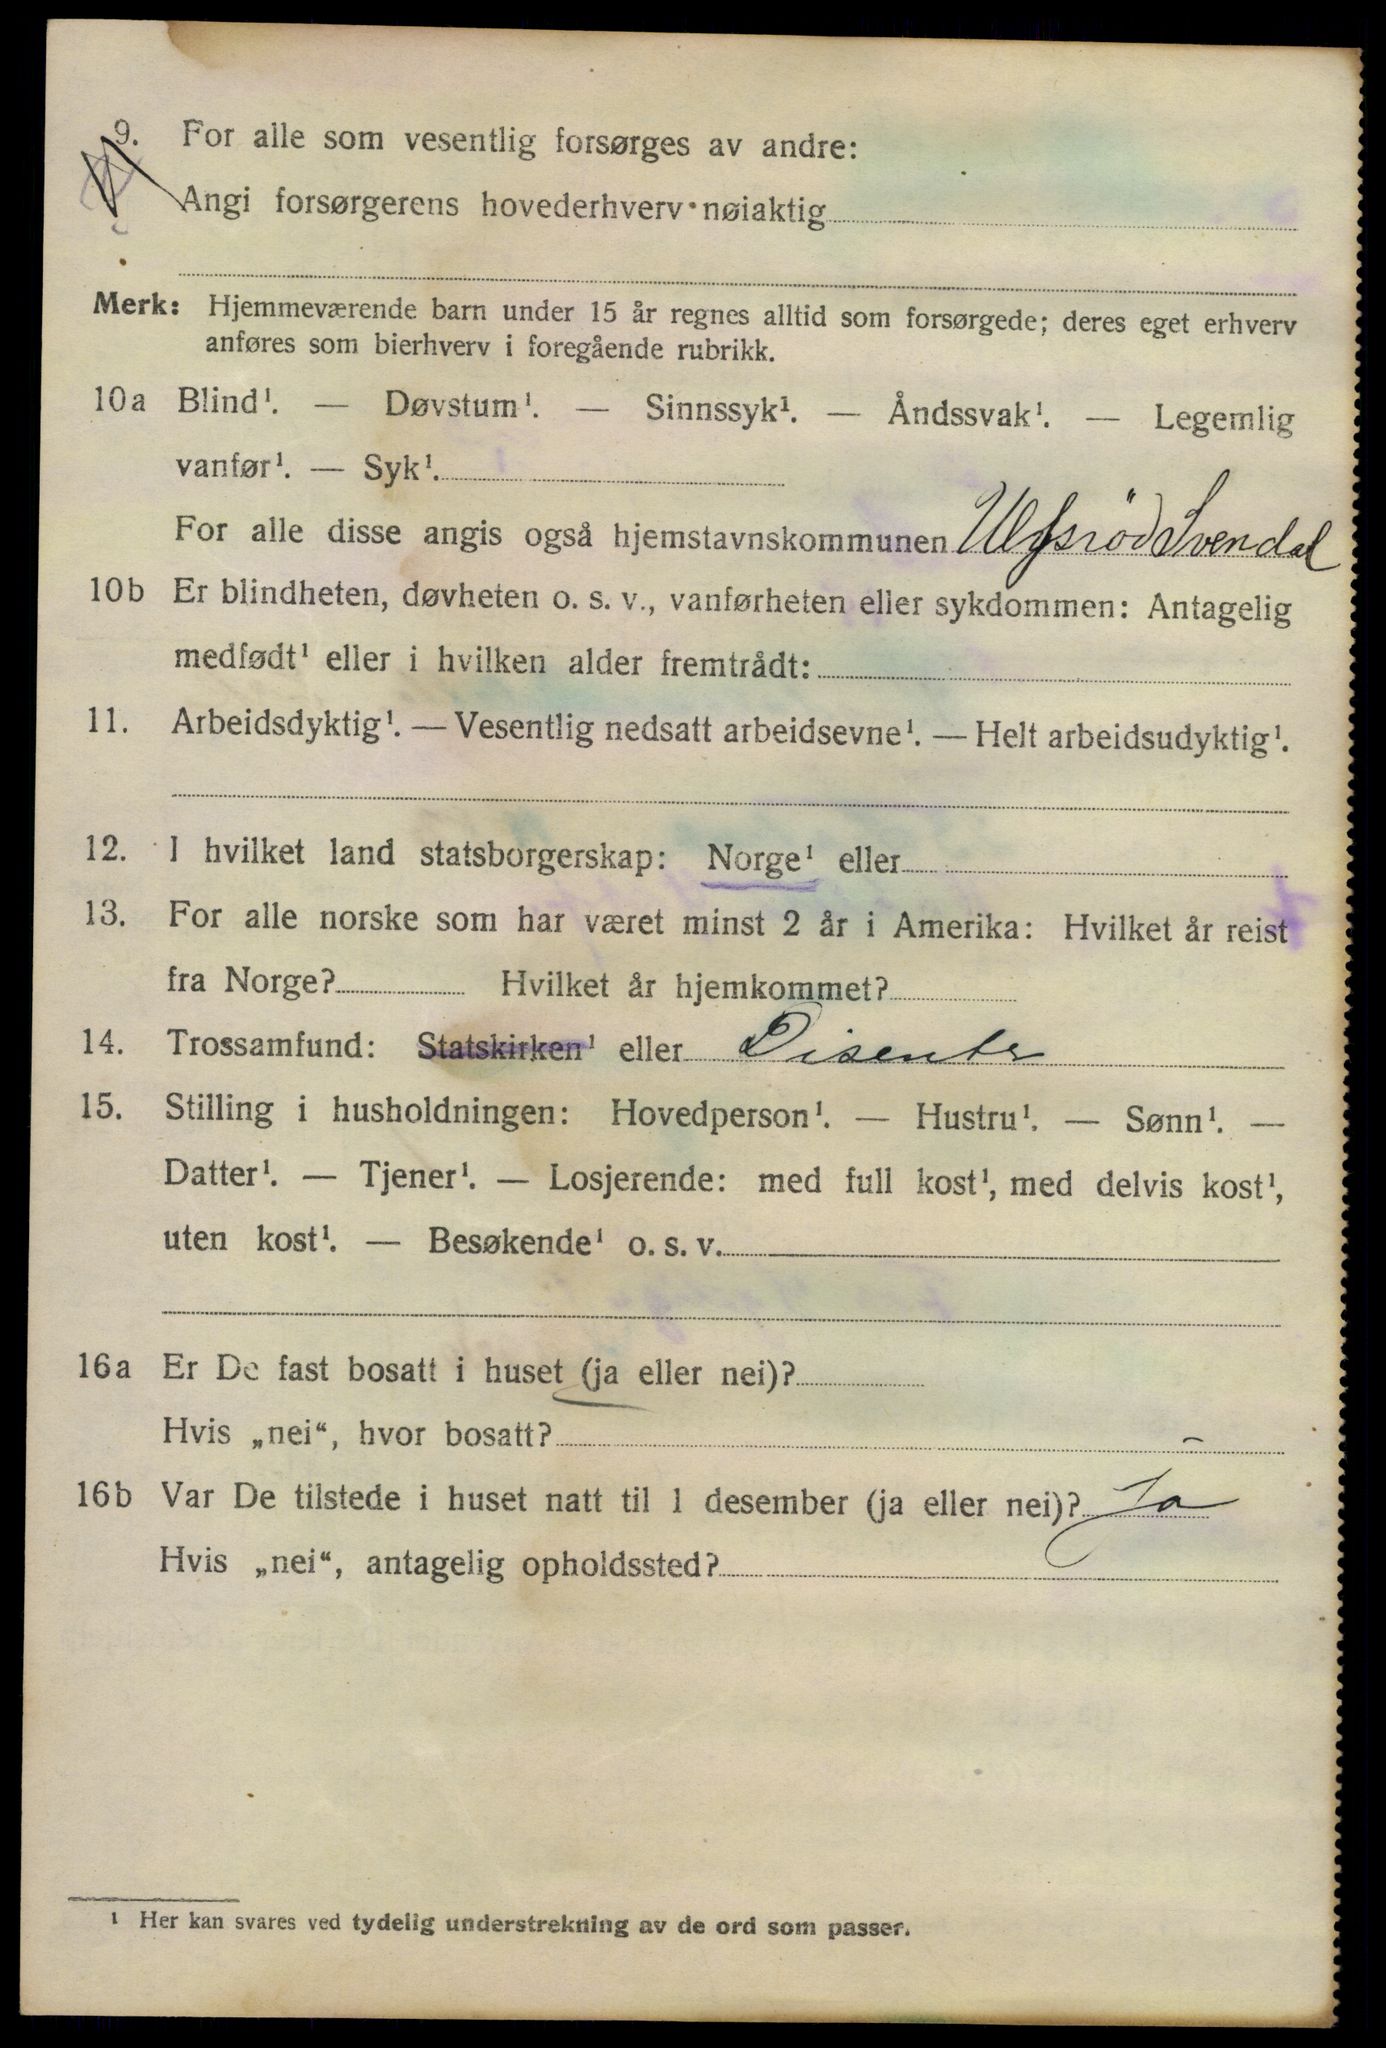 9. For alle som vesentlig forsørges av andre:
Angi forsørgerens hovederhverv nøiaktig
Merk: Hjemmeværende barn under 15 år regnes alltid som forsørgede; deres eget erhverv
anføres som bierhverv i foregående rubrikk.
10a Blind¹. — Døvstum¹. — Sinnssyk¹. — Åndssvak¹. — Legemlig
vanfør¹. — Syk¹.
For alle disse angis også hjemstavnskommunen Ulfsrød Svendal
10b Er blindheten, døvheten o. s. v., vanførheten eller sykdommen: Antagelig
medfødt¹ eller i hvilken alder fremtrådt:
11. Arbeidsdyktig¹. — Vesentlig nedsatt arbeidsevne¹. — Helt arbeidsudyktig¹.
12. I hvilket land statsborgerskap: Norge¹ eller
13. For alle norske som har været minst 2 år i Amerika: Hvilket år reist
fra Norge? Hvilket år hjemkommet?
14. Trossamfund: Statskirken¹ eller Disenter
15. Stilling i husholdningen: Hovedperson¹. — Hustru¹. — Sønn¹. —
Datter¹. — Tjener¹. — Losjerende: med full kost¹, med delvis kost¹,
uten kost¹. — Besøkende¹ o. s. v.
16a Er De fast bosatt i huset (ja eller nei)?
Hvis „nei“, hvor bosatt?
16b Var De tilstede i huset natt til 1 desember (ja eller nei)? Ja
Hvis „nei“, antagelig opholdssted?
¹ Her kan svares ved tydelig understrekning av de ord som passer.